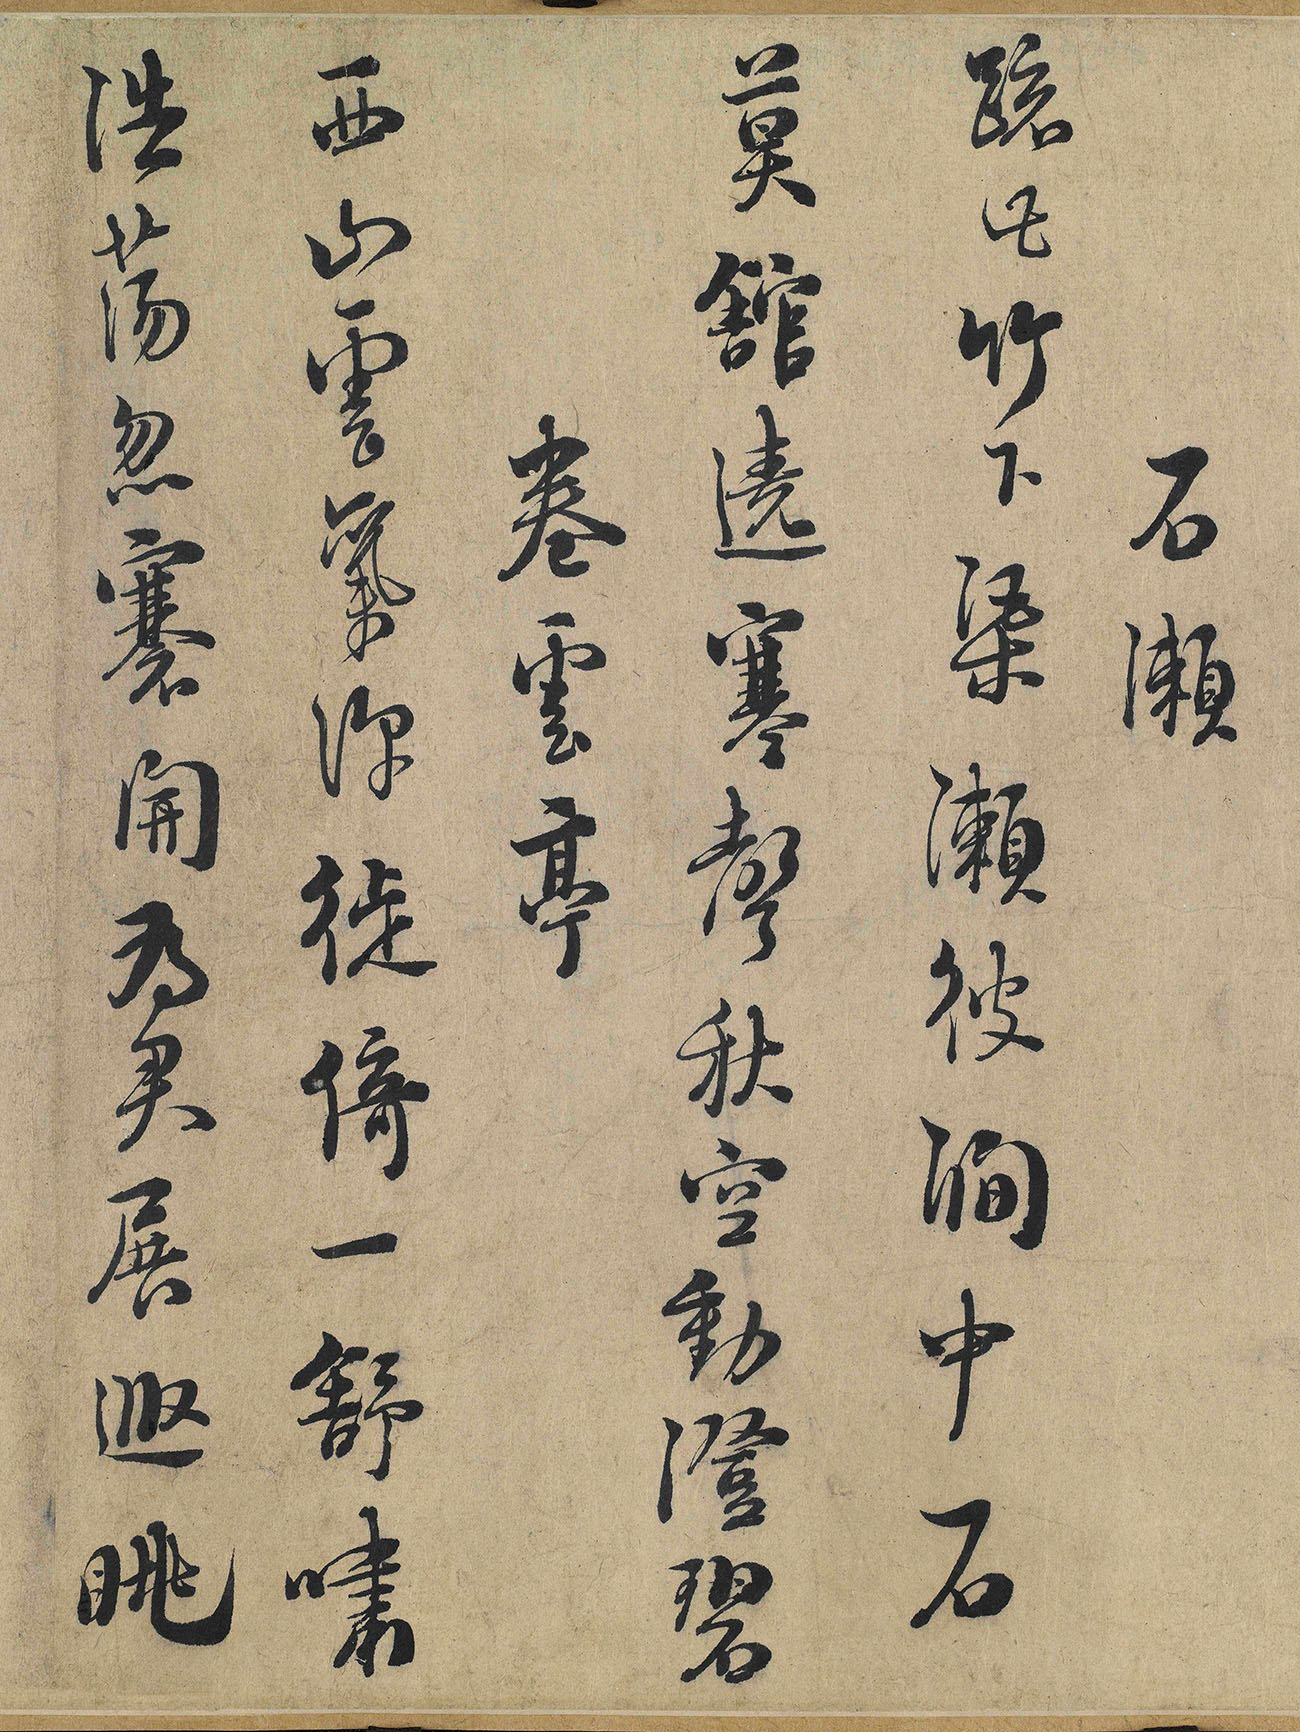 石瀨
踈此竹下渠瀨彼澗中石
莫舘遶寒聲秋空動澄碧
卷雲亭
西山雲氣深徙倚一舒嘯
浩蕩忽褰開為君展遐眺